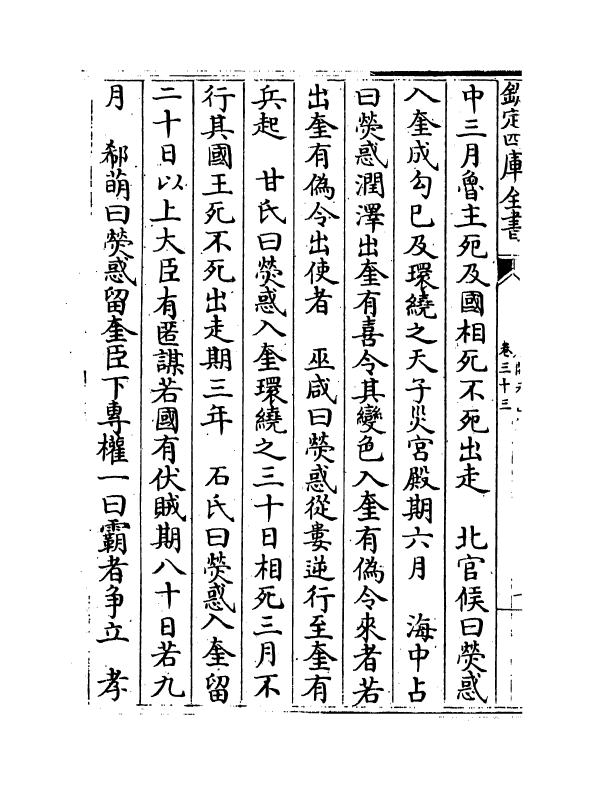 欽定四庫全書
卷三十三
中三月魯主死及國相死不死出走　北官候曰熒惑
入奎成勾巳及環繞之天子災宮殿期六月　海中占
曰熒惑潤澤出奎有喜令其變色入奎有偽令來者若
出奎有偽令出使者　巫咸曰熒惑從婁逆行至奎有
兵起　甘氏曰熒惑入奎環繞之三十日相死三月不
行其國王死不死出走期三年　石氏曰熒惑入奎留
二十日以上大臣有匿謀若國有伏賊期八十日若九
月　郗萌曰熒惑留奎臣下專權一曰霸者争立　孝